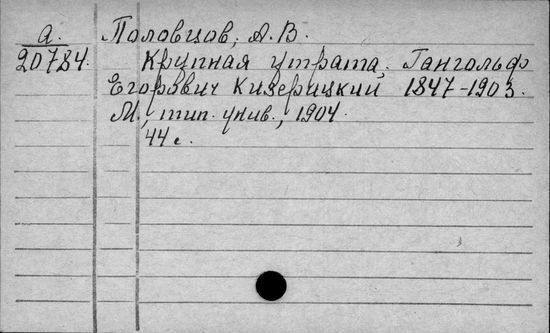 а. Половцов, А.В.
20784. Крупная утрата. Гангольф
Егорович Кизерицкий 1847-1903.
М., тип. унив., 1904.
44 с.